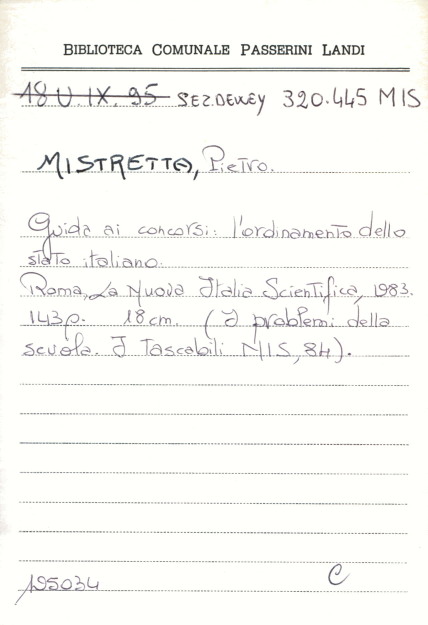 BIBLIOTECA COMUNALE PASSERINI LANDI
18 U. IX. 95 SEZ.DEWEY 320.445 MIS
MISTRETTA, Pietro.
Guida ai concorsi: l'ordinamento dello
stato italiano.
Roma, La Nuova Italia Scientifica, 1983.
143p. 18cm. (I problemi della
scuola. I Tascabili NIS, 84).
195034 C